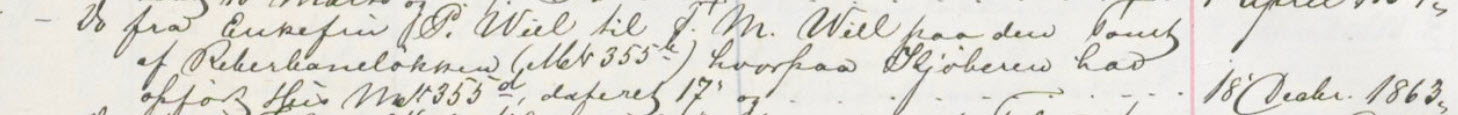 – Do fra Enkefru P. Wiel til J. M. Wiel paa den Tomt
af Reberbaneløkken (Mat N 355 b) hvorpaa Kjøberen har
opført Huus Mat N 355 d, dateret 17 og . . . . . . . . . . 18 Decbr. 1863,